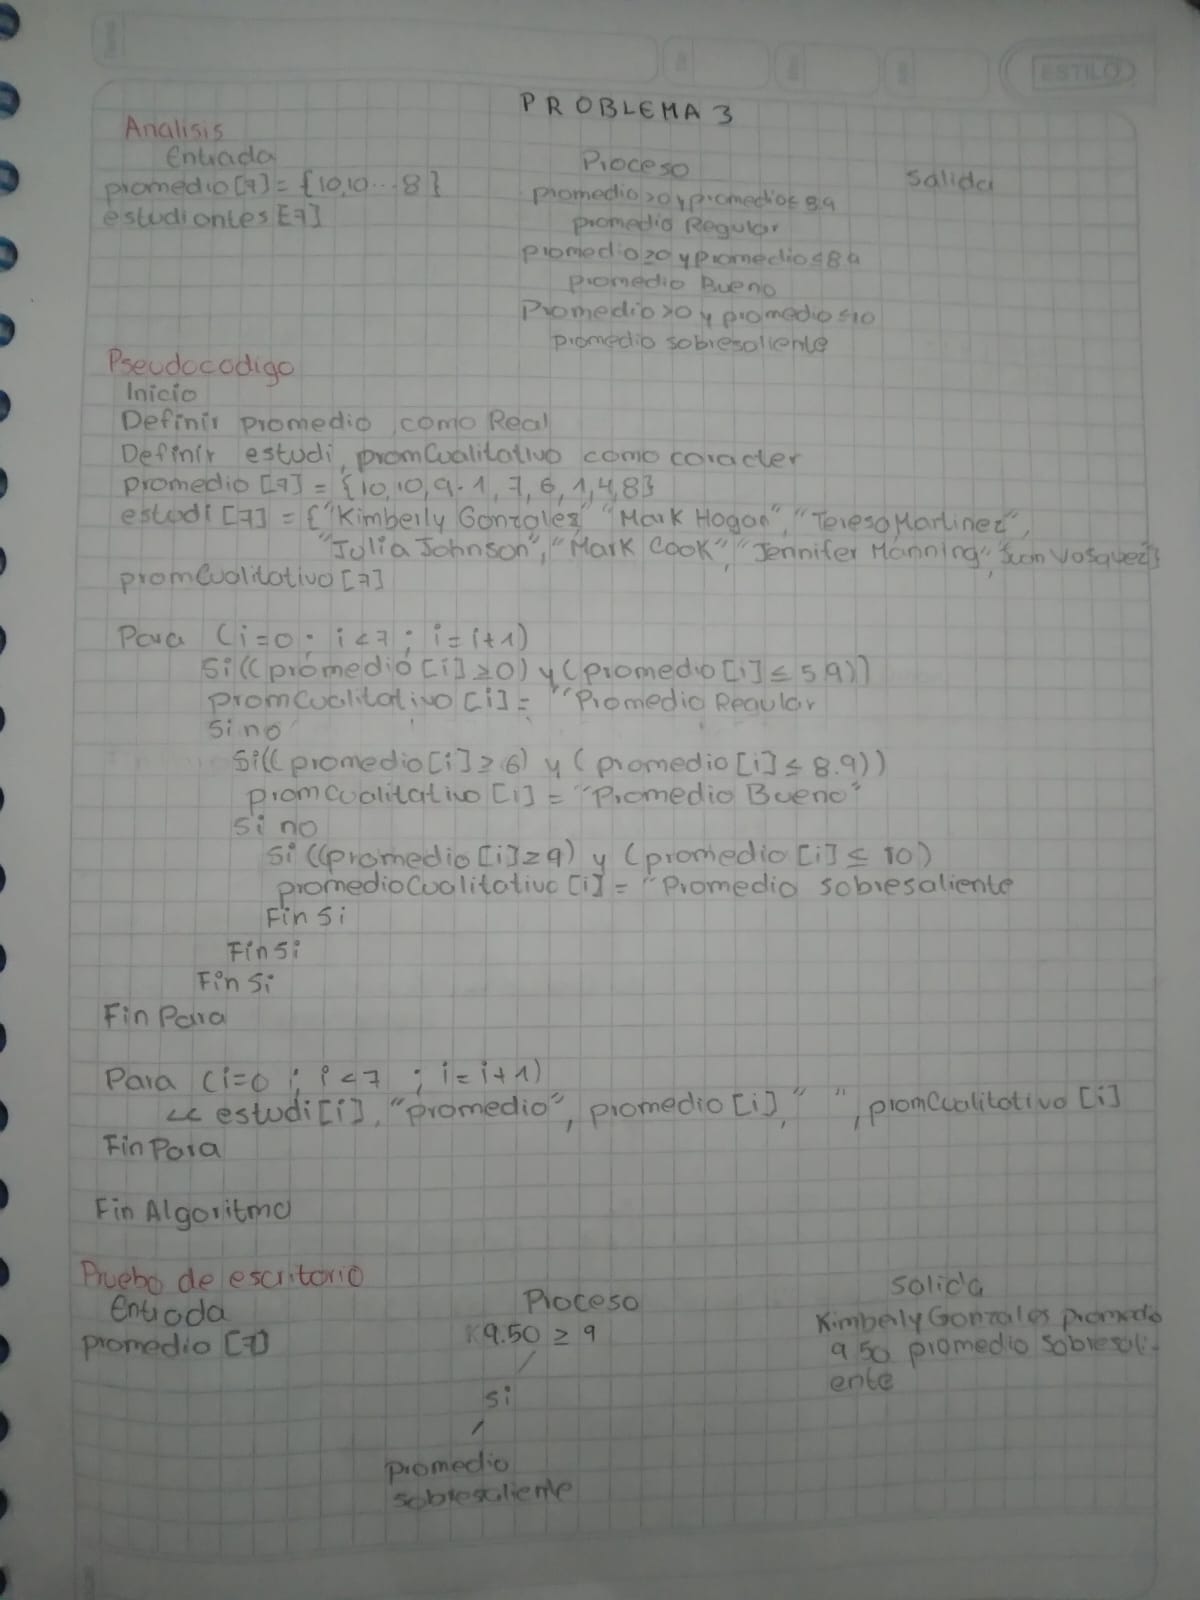 ESTILO
PROBLEMA 3
Analisis
Entrada
Proceso
Salida
promedio[7]={10,10...8}
estudiantes[7]
promedio>0 y promedio≤ 8.9
promedio Regular
promedio≥0 y promedio≤8 9
promedio Bueno
Promedio>0 y promedio≤10
promedio sobresaliente
Pseudocodigo
Inicio
Definir promedio como Real
Definir estudi, promCualitativo como caracter
promedio [7] = {10,10,9.1,7,6,1,4,8}
estudi [7] = {"Kimberly Gonzales" "Mark Hogan", "Teresa Martinez",
"Julia Johnson", "Mark Cook", "Jennifer Manning", "Juan Vasquez"}
promCualitativo [7]
Para (i=0; i<7; i=i+1)
Si((promedio[i]≥0) y (promedio[i]≤ 5.9))
promCualitativo [i]= "Promedio Regular
Si no
Si((promedio[i]≥6) y (promedio[i]≤ 8.9))
promCualitativo [i] = "Promedio Bueno"
Si no
Si ((promedio[i]≥9) y (promedio [i] ≤ 10)
promedioCualitativo [i] = "Promedio sobresaliente
Fin Si
Fin Si
Fin Si
Fin Para
Para (i=0 ; i<7 ; i=i+1)
<< estudi[i], "promedio", promedio[i], " ", promCualitativo [i]
Fin Para
Fin Algoritmo
Prueba de escritorio
Entrada
Proceso
Salida
promedio [7]
9.50 ≥ 9
si
promedio
sobresaliente
Kimberly Gonzales promedio
9 50 promedio sobresali-
ente